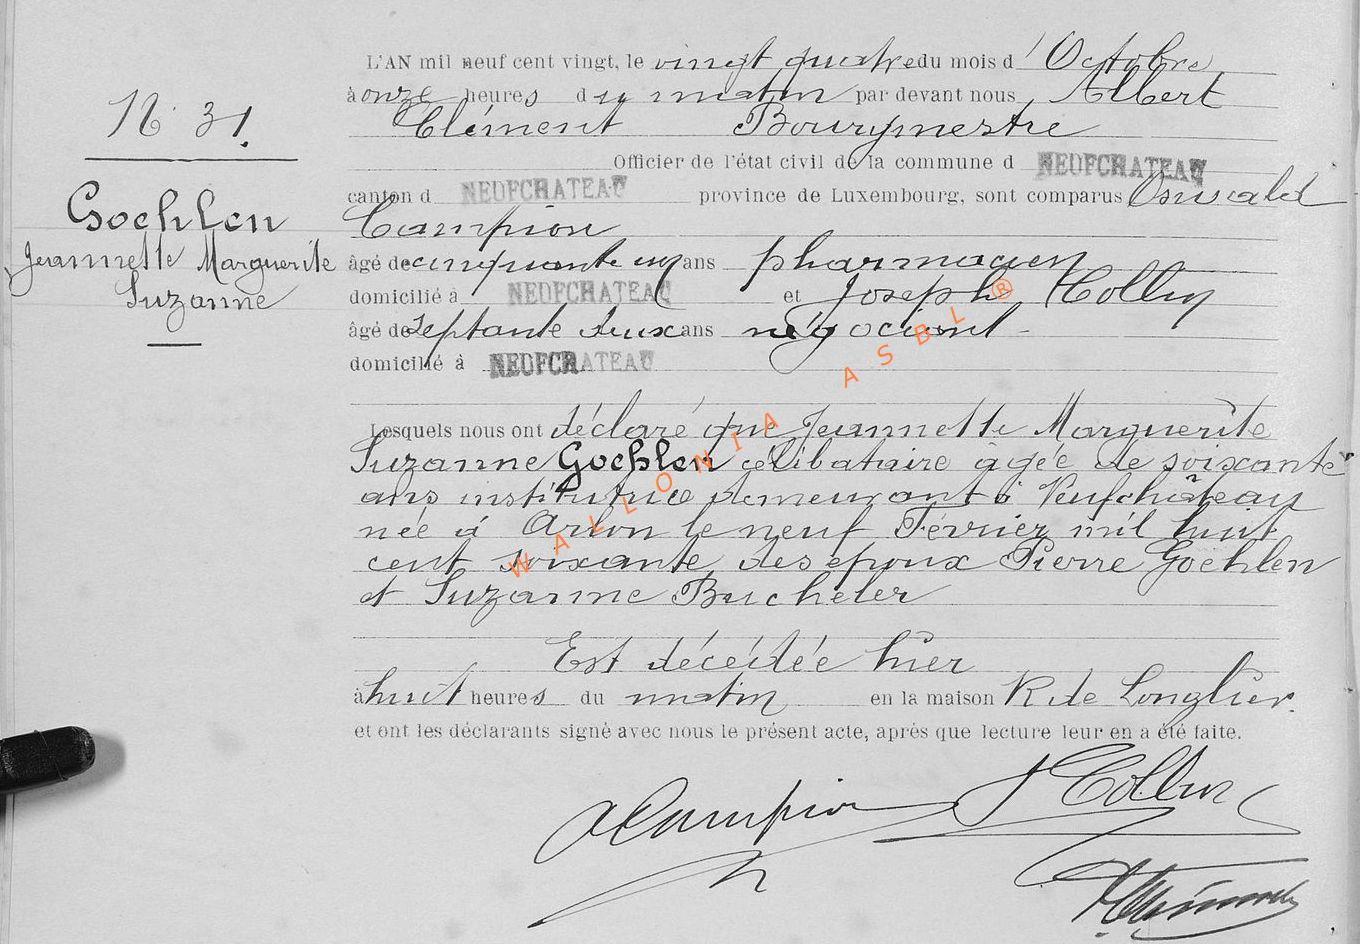 N° 31.
Goehlen
Jeannette Marguerite
Suzanne
L'AN mil neuf cent vingt, le vingt quatre du mois d'Octobre
à onze heures du matin par devant nous Albert
Clément Bourgmestre
Officier de l'état civil de la commune d NEUFCHATEAU
canton d NEUFCHATEAU province de Luxembourg, sont comparus Oswald
Campion
âgé de cinquante un ans pharmacien
domicilié à NEUFCHATEAU et Joseph Collin
âgé de septante deux ans négociant -
domicilié à NEUFCHATEAU
Lesquels nous ont déclaré que Jeannette Marguerite
Suzanne Goehlen célibataire âgée de soixante
ans institutrice demeurant à Neufchâteau
née à Arlon le neuf Février mil huit
cent soixante des époux Pierre Goehlen
et Suzanne Bucheler
Est décédée hier
à huit heures du matin en la maison R. de Longlier.
et ont les déclarants signé avec nous le présent acte, après que lecture leur en a été faite.
O Campion J Collin
WALLONIA ASBL ®